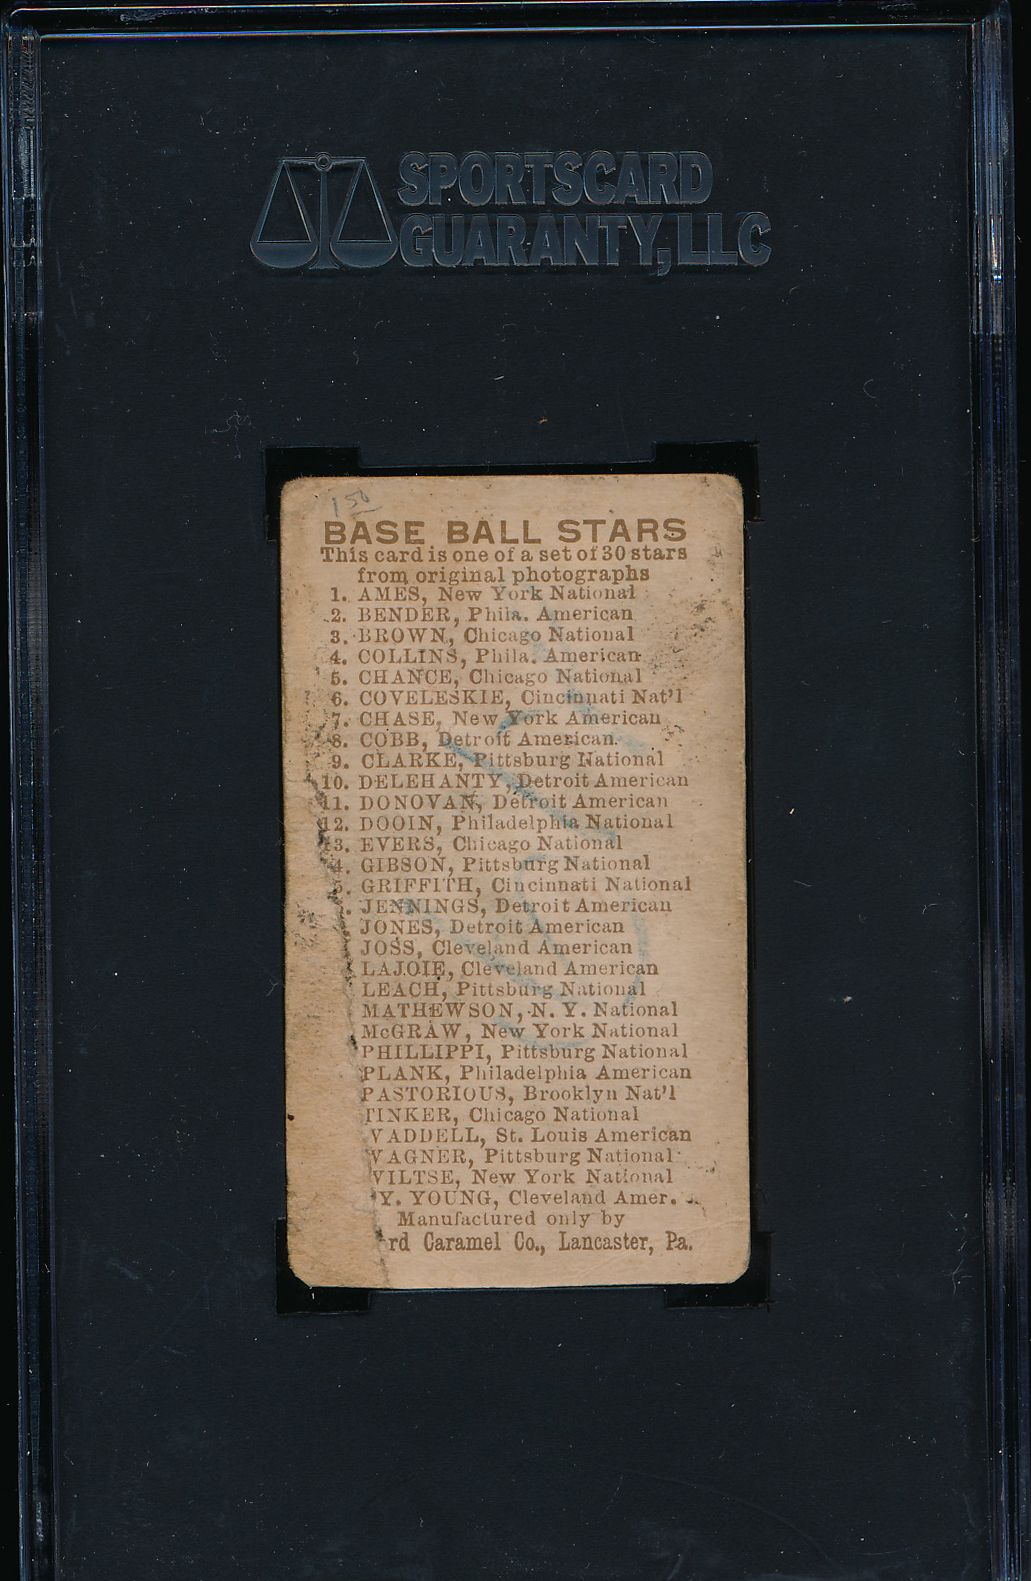 SPORTSCARD
GUARANTY, LLC
1 50
BASE BALL STARS
This card is one of a set of 30 stars
from original photographs
1. AMES, New York National
2. BENDER, Phila. American
3. BROWN, Chicago National
4. COLLINS, Phila. American
5. CHANCE, Chicago National
6. COVELESKIE, Cincinnati Nat'l
7. CHASE, New York American
8. COBB, Detroit American.
9. CLARKE, Pittsburg National
10. DELEHANTY, Detroit American
11. DONOVAN, Detroit American
12. DOOIN, Philadelphia National
13. EVERS, Chicago National
4. GIBSON, Pittsburg National
5. GRIFFITH, Cincinnati National
. JENNINGS, Detroit American
JONES, Detroit American
JOSS, Cleveland American
LAJOIE, Cleveland American
LEACH, Pittsburg National
MATHEWSON, N. Y. National
McGRAW, New York National
PHILLIPPI, Pittsburg National
PLANK, Philadelphia American
PASTORIOUS, Brooklyn Nat'l
TINKER, Chicago National
VADDELL, St. Louis American
VAGNER, Pittsburg National
VILTSE, New York National
Y. YOUNG, Cleveland Amer.
Manufactured only by
rd Caramel Co., Lancaster, Pa.